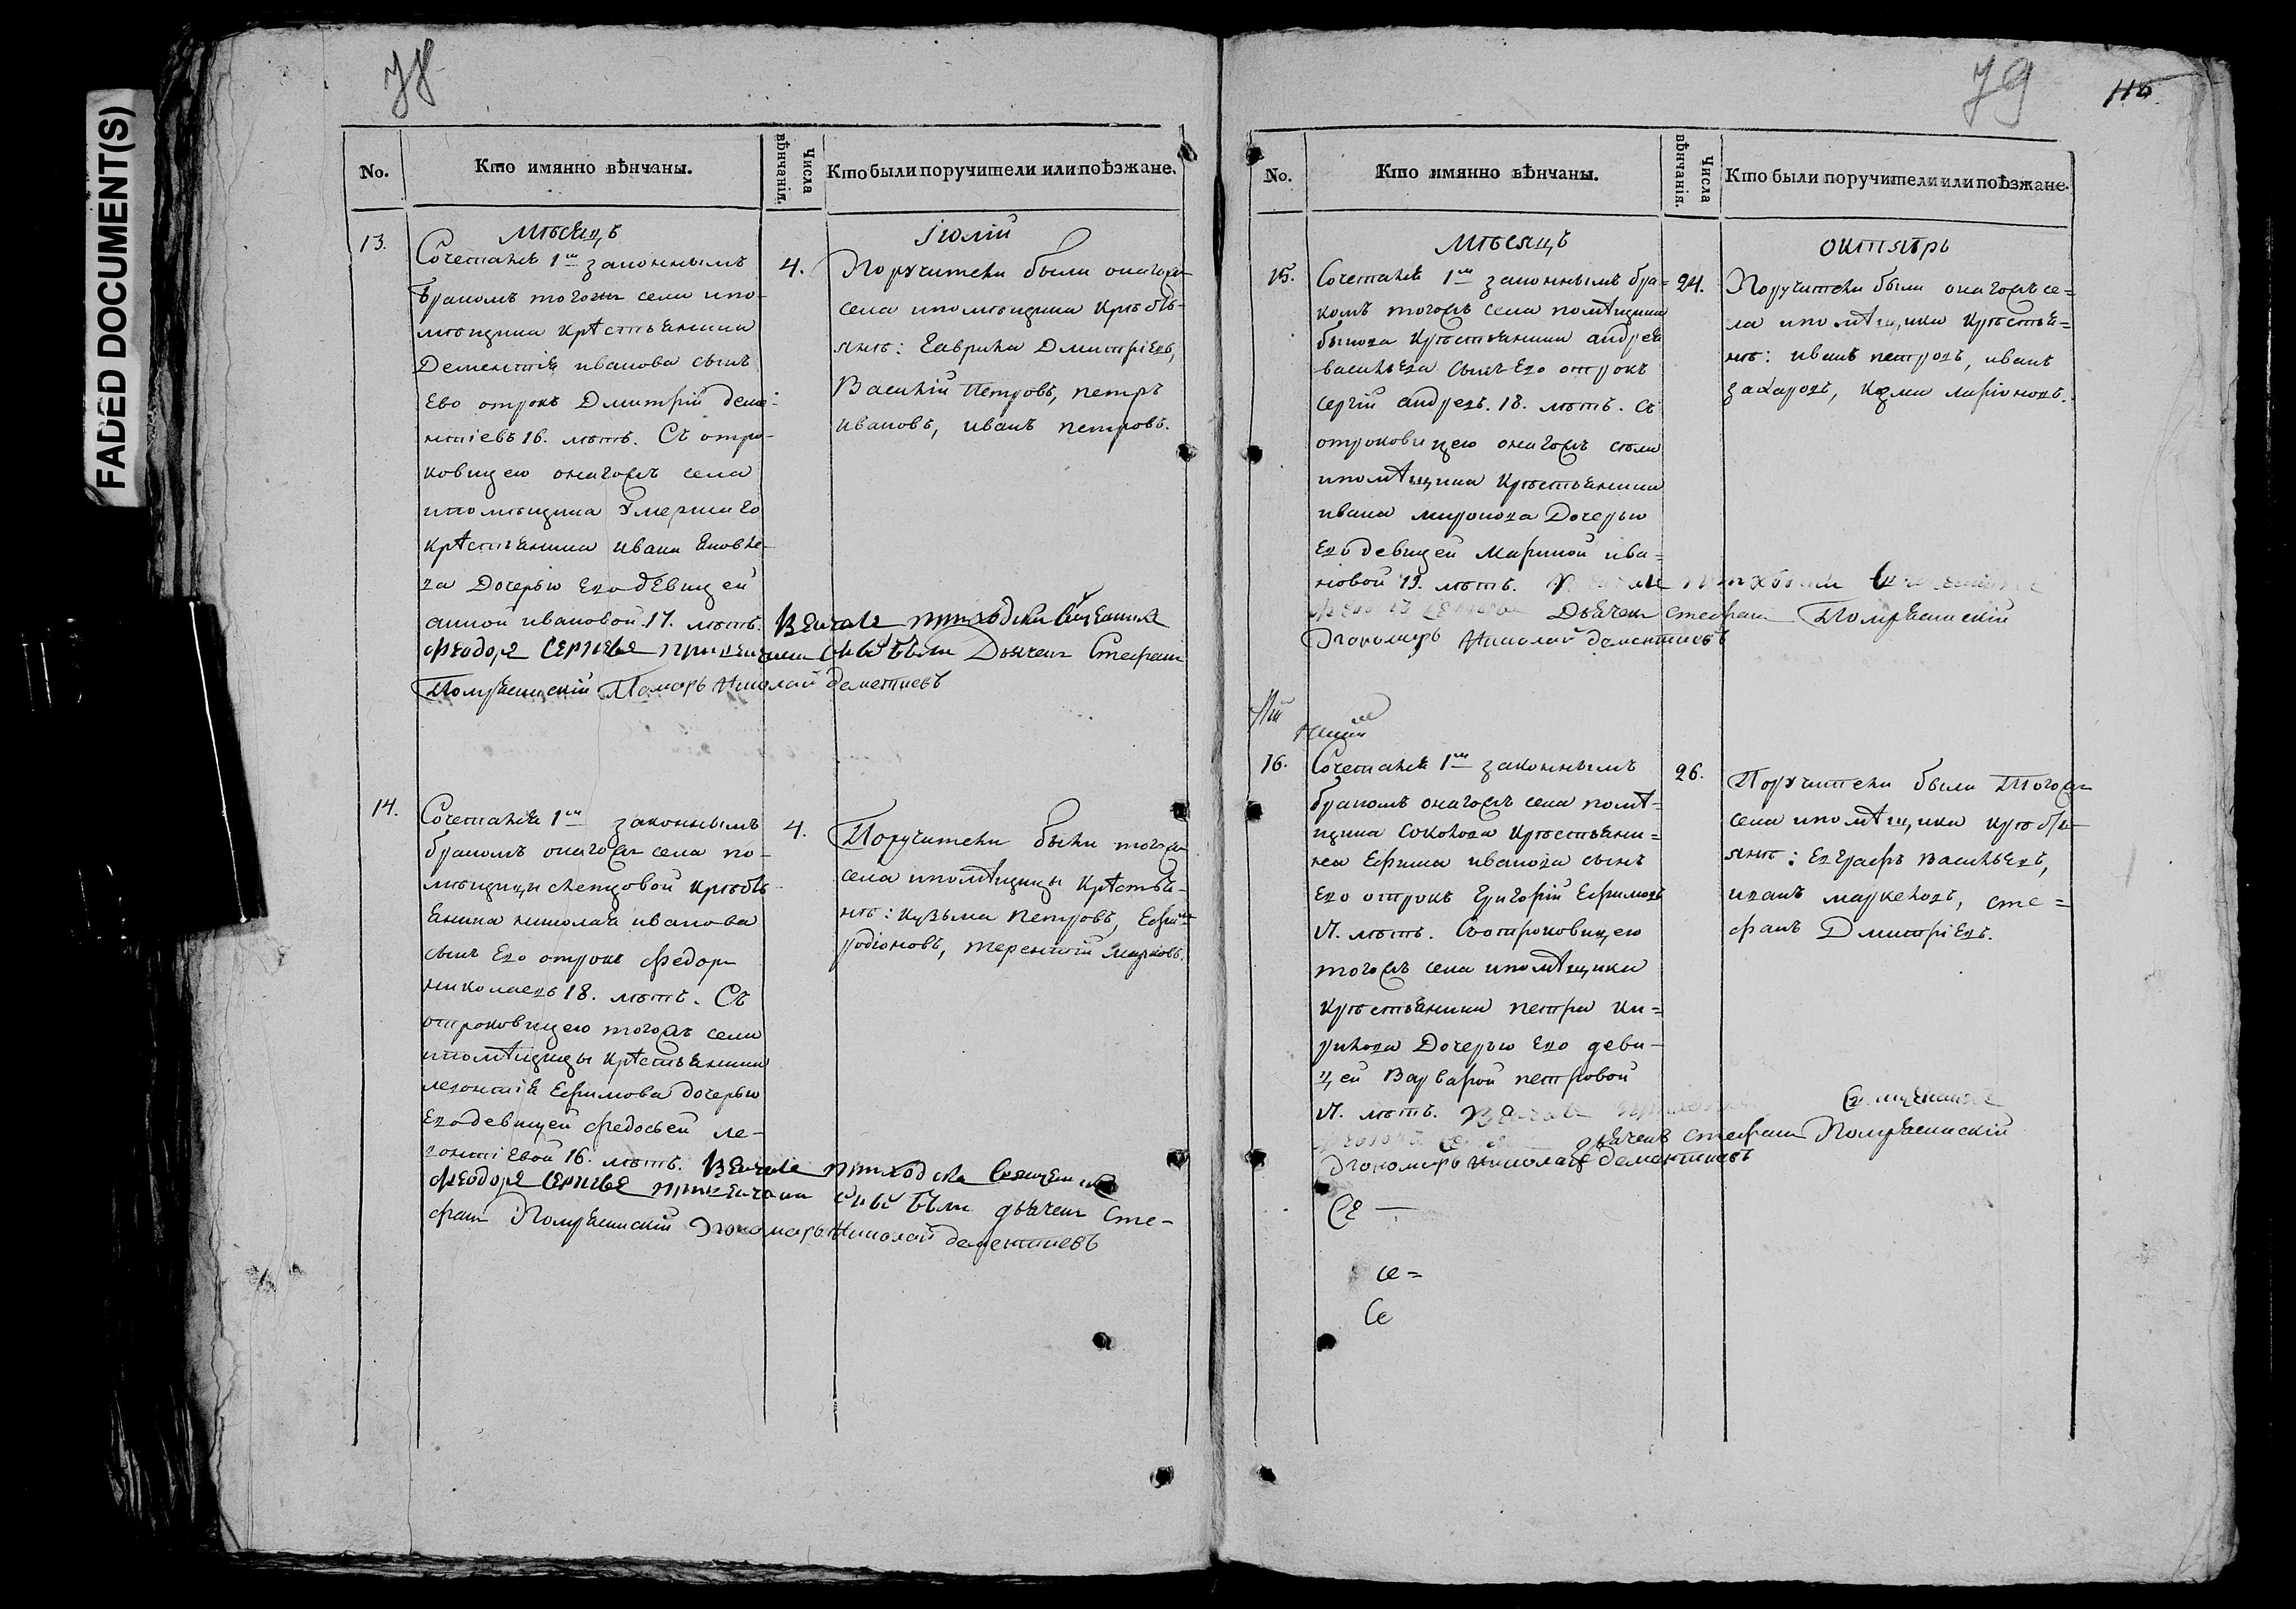 FADED DOCUMENT(S)
78
No.
Кто имянно вѣнчаны.
Числа вѣнчанія.
Кто были поручители или поѣзжане.
Мѣсяцъ
Іюлій
13.
Сочетанъ 1м законнымъ
бракомъ тогожъ села упо-
мѣщика крѣстьянина
Дементія иванова сынъ
Ево отрокъ Дмитрій деме-
нтіевъ 16. лѣтъ. Съ отро-
ковицею онагожъ села
упомѣщика Умершаго
крѣстьянина ивана яковле-
ва Дочерью Его дѣвицей
анной ивановой. 17. лѣтъ. Венчалъ приходски Священникъ
Феодоръ Сергиевъ при венчании были Дьячекъ Стефанъ
Померанский Понамарь Николай дементиевъ
4.
Поручители были онагожъ
села упомѣщика крѣстья-
янъ: Гаврила Дмитріевъ,
Василій Петровъ, петръ
ивановъ, иванъ петровъ.
14.
Сочетанъ 1м законнымъ
бракомъ онагожъ села по-
мѣщицы крѣсть-
янина николая иванова
сынъ Его отрокъ Федоръ
николаевъ 18. лѣтъ. Съ
отроковицею тогожъ села
упомѣщицы крѣстьянина
леонтія Ефимова дочерью
Его девицей Федосьей ле-
онтіевой 16. лѣтъ. Венчалъ приходски Священникъ
Феодоръ Сергиевъ при венчании были дьячекъ Сте-
фанъ Померанский Понамарь Николай дементиевъ
4.
Поручители были тогожъ
села упомѣщицы крѣстья-
нъ: Кузьма Петровъ, Ефимъ
родіоновъ, терентій Марковъ.
79
No.
Кто имянно вѣнчаны.
Числа вѣнчанія.
Кто были поручители или поѣзжане.
Мѣсяцъ
октябрь
15.
Сочетанъ 1м законнымъ бра-
комъ тогожъ села помѣщика
крѣстьянина андрея
васильева сынъ Его отрокъ
сергій андревъ. 18. лѣтъ. Съ
отроковицею онагожъ села
упомѣщика крѣстьянина
ивана миронова Дочерью
Его девицей Мариной ива-
новой 19. лѣтъ.
Дьячекъ стефанъ Померанский
Понамарь Николай дементиевъ
24.
Поручители были онагожъ се=
ла упомѣщика крѣстья=
нъ: иванъ петровъ, иванъ
захаровъ, козма ларіоновъ.
16.
Сочетанъ 1м законнымъ
бракомъ онагожъ села помѣ-
щика Соколова крѣстьяни=
на Ефима иванова сынъ
Его отрокъ Григорій Ефимовъ
17. лѣтъ. Съ отроковицею
тогожъ села упомѣщика
крѣстьянина петра Ки=
рилова Дочерью Его деви-
цей Варварой петровой
17. лѣтъ. Венчалъ Священникъ
дьячекъ стефанъ Померанский
Понамарь Николай дементиевъ
26.
Поручители были Тогожъ
села упомѣщика крѣстья-
янъ: Евграфъ васильевъ,
иванъ маркеловъ, сте=
фанъ Дмитріевъ.
Се —
се =
Се